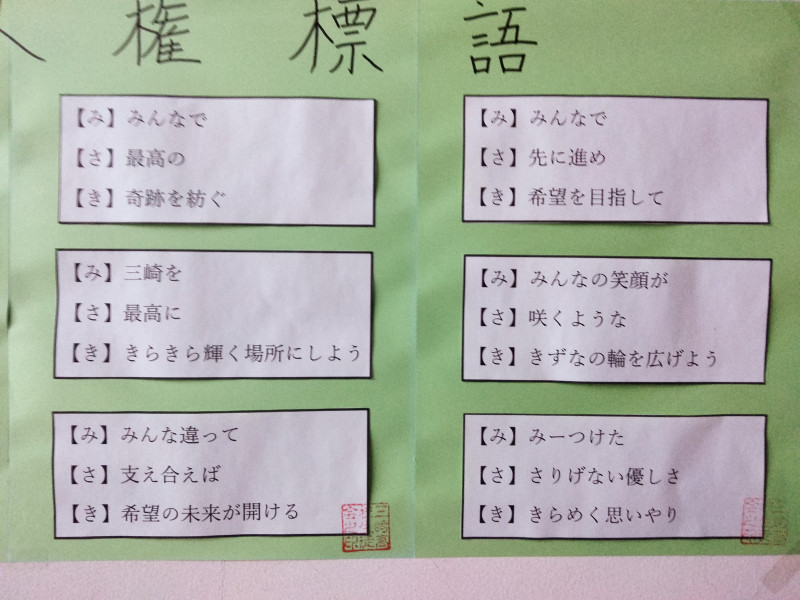 人権標語
【み】みんなで
【さ】最高の
【き】奇跡を紡ぐ
【み】三崎を
【さ】最高に
【き】きらきら輝く場所にしよう
【み】みんな違って
【さ】支え合えば
【き】希望の未来が開ける
【み】みんなで
【さ】先に進め
【き】希望を目指して
【み】みんなの笑顔が
【さ】咲くような
【き】きずなの輪を広げよう
【み】みーつけた
【さ】さりげない優しさ
【き】きらめく思いやり